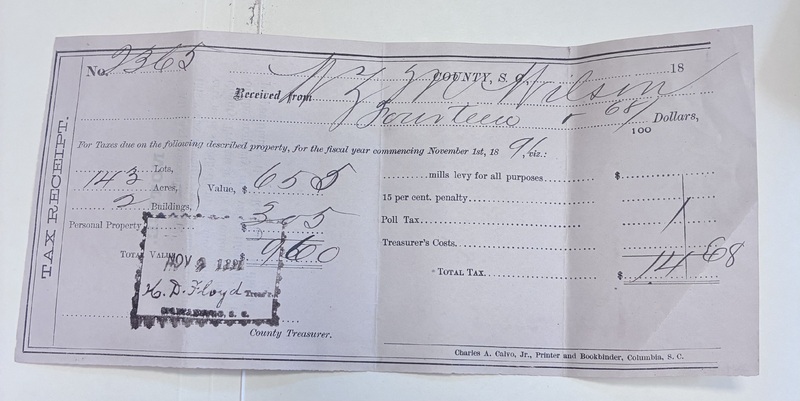 TAX RECEIPT.
No. 2363
COUNTY, S. C. 18
Received from Wilson
Fourteen & 68/100 Dollars,
For Taxes due on the following described property, for the fiscal year commencing November 1st, 18 91, viz.:
Lots,
143 Acres,
2 Buildings,
Value, $ 655
Personal Property 305
TOTAL VALUE $ 960
NOV
H. D. Floyd Treas'r.
S. C.
County Treasurer.
mills levy for all purposes $
15 per cent. penalty
Poll Tax
Treasurer's Costs
TOTAL TAX $ 14 68
Charles A. Calvo, Jr., Printer and Bookbinder, Columbia, S. C.